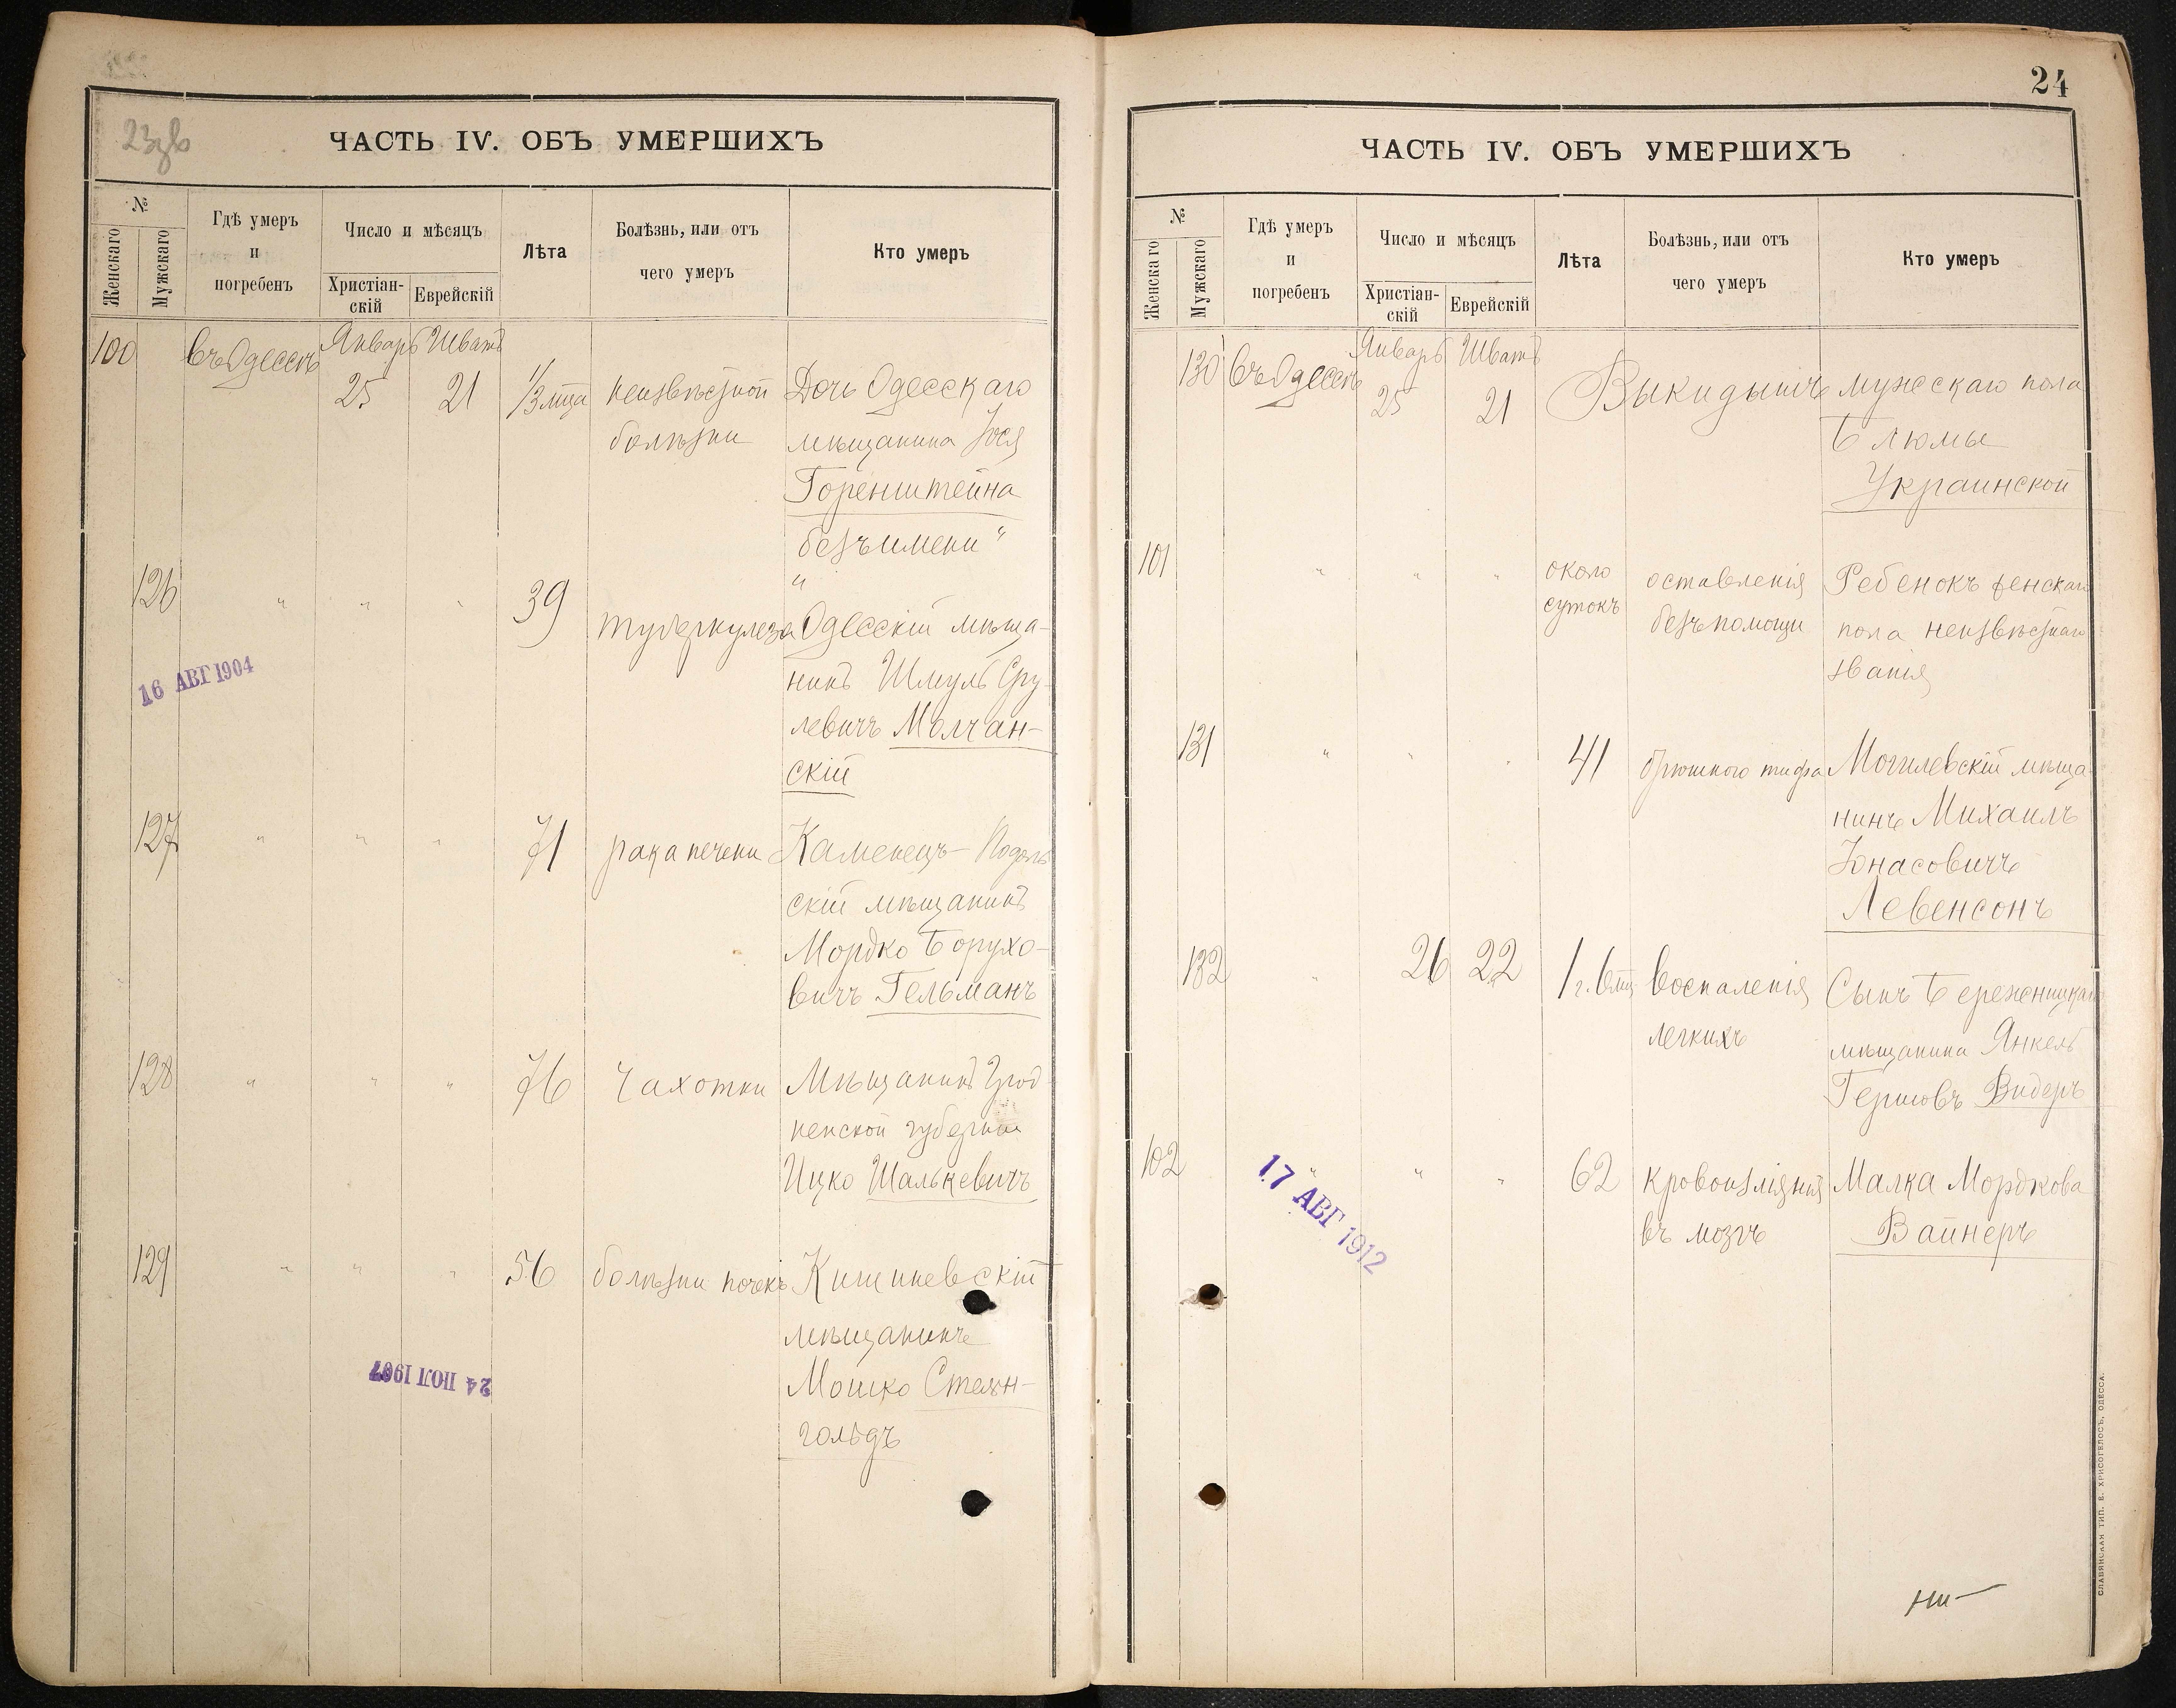 23зв
ЧАСТЬ IV. ОБЪ УМЕРШИХЪ
№
Женскаго
Мужскаго
Гдѣ умеръ
и
погребенъ
Число и мѣсяцъ
Христіан-
скій
Еврейскій
Лѣта
Болѣзнь, или отъ
чего умеръ
Кто умеръ
100 въ Одессѣ Январь Шватъ
25 21 1/3 мца неизвѣстной Дочь Одесскаго
болѣзни мѣщанина Іося
Горенштейна
безъ имени "
126 " " " 39 "
туберкулеза Одесскій мѣща-
нинъ Шмуль Сру-
левичъ Молчан-
скій
16 АВГ 1904
127 " " " 71 рака печени Каменецъ-Подоль
скій мѣщанинъ
Мордко Борухо-
вичъ Гельманъ
128 " " " 76 Чахотки Мѣщанинъ Грод
ненской губерніи
Ицко Шалькевичъ
129 " " " 56 болѣзни почекъ Кишиневскій
мѣщанинъ
Мошко Стелн-
гольдъ
24 ІЮЛ 1907
24
ЧАСТЬ IV. ОБЪ УМЕРШИХЪ
№
Женскаго
Мужскаго
Гдѣ умеръ
и
погребенъ
Число и мѣсяцъ
Христіан-
скій
Еврейскій
Лѣта
Болѣзнь, или отъ
чего умеръ
Кто умеръ
130 въ Одессѣ Январь Шватъ
25 21 Выкидышъ мужескаго пола
Блюмы
Украинской
101 " " " около оставленія Ребенокъ женскаго
сутокъ безъ помощи пола неизвѣстнаго
званія
131 " " " 41 брюшного тифа Могилевскій мѣща
нинъ Михаилъ
Іонасовичъ
Левенсонъ
132 " 26 22 1 г. 6 мц воспаленія Сынъ Бережницкаго
легкихъ мѣщанина Янкель
Гершовъ Видеръ
102 " " " 62 кровоизліянія Малка Мордкова
въ мозгъ Вайнеръ
17 АВГ 1912
СЛАВЯНСКАЯ ТИП. Е. ХРИСОГЕЛОСЪ, ОДЕССА.